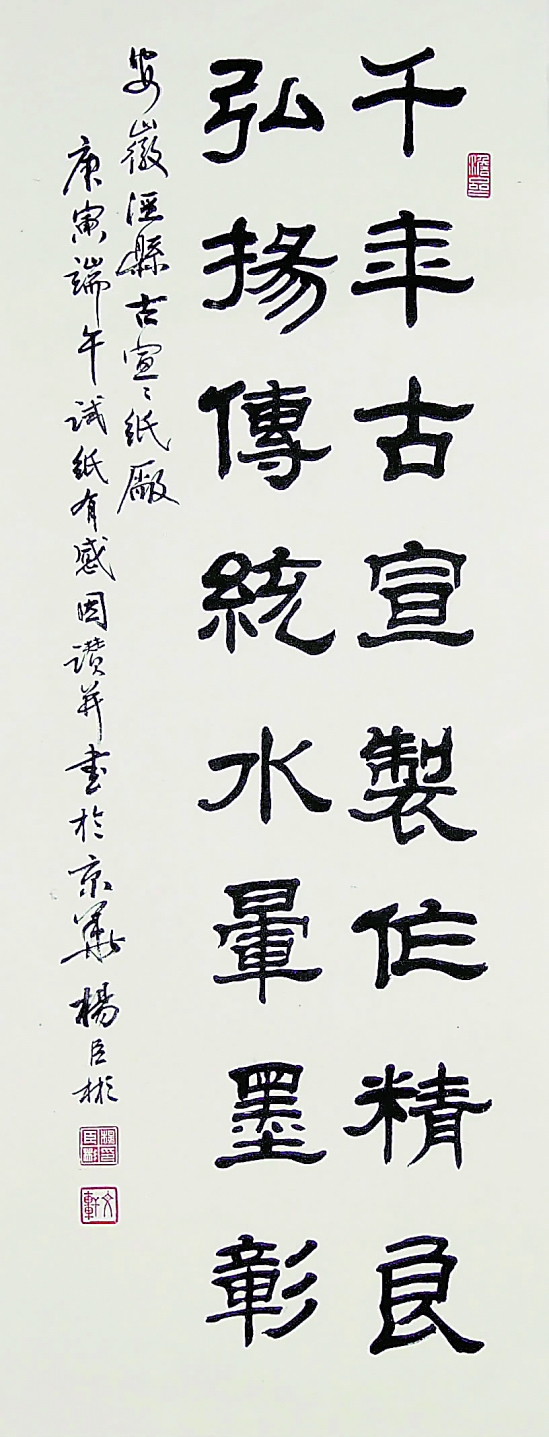 千年古宣製作精良
弘揚傳統水暈墨彰
安徽涇縣古宣宣紙廠
庚寅端午試紙有感因讚并書於京華 楊臣彬
文軒